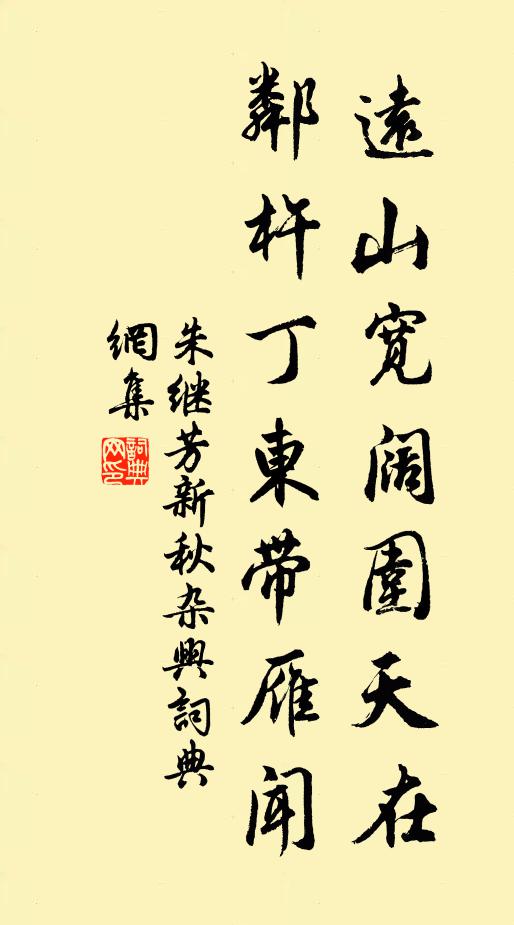 遠山寬阔圍天在
鄰杵丁東带雁闻
朱继芳新秋杂興詞典
網集
詞典网印